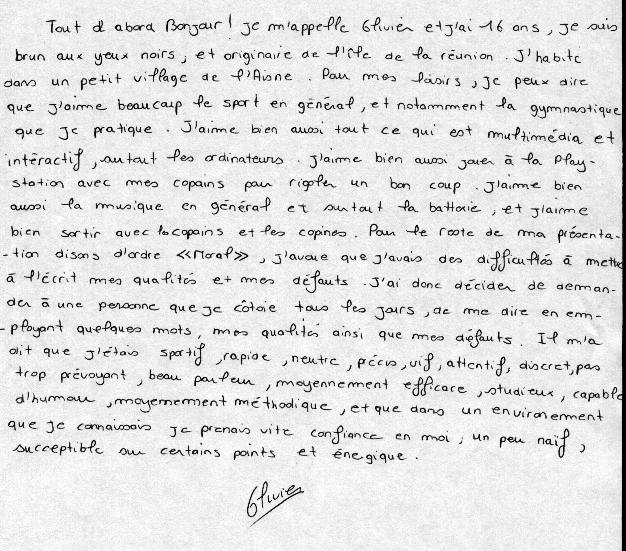 Tout d abord Bonjour! je m'appelle Olivier et j'ai 16 ans, je suis
brun aux yeux noirs, et originaire de l'île de la réunion. J'habite
dans un petit village de l'Aisne. Pour mes loisirs, je peux dire
que j'aime beaucoup le sport en général, et notamment la gymnastique
que je pratique. J'aime bien aussi tout ce qui est multimédia et
intéractif, surtout les ordinateurs. J'aime bien aussi jouer à la Play-
station avec mes copains pour rigoler un bon coup. J'aime bien
aussi la musique en général et surtout la batterie, et j'aime
bien sortir avec les copains et les copines. Pour le reste de ma présenta-
-tion disons d'ordre «Moral», j'avoue que j'avais des difficultés à mettre
à l'écrit mes qualités et mes défauts. J'ai donc décider de deman-
der à une personne que je côtoie tous les jours, de me dire en em-
-ployant quelques mots, mes qualités ainsi que mes défauts. Il m'a
dit que j'étais sportif, rapide, neutre, précis, vif, attentif, discret, pas
trop prévoyant, beau parleur, moyennement efficace, studieux, capable
d'humour, moyennement méthodique, et que dans un environement
que je connaissais je prenais vite confiance en moi, un peu naïf,
succeptible sur certains points et énergique.
Olivier